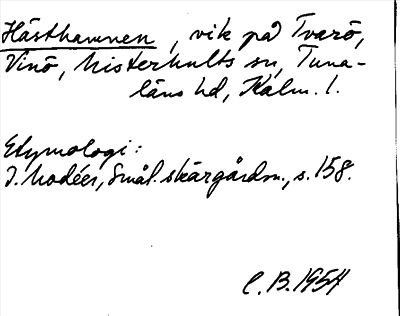 Hästhamnen, vik på Tvarö,
Vinö, Misterhults sn, Tuna-
läns hd, Kalm. l.
Etymologi:
I. Modéer, Smål. skärgårdsn., s. 158.
C. B. 1954